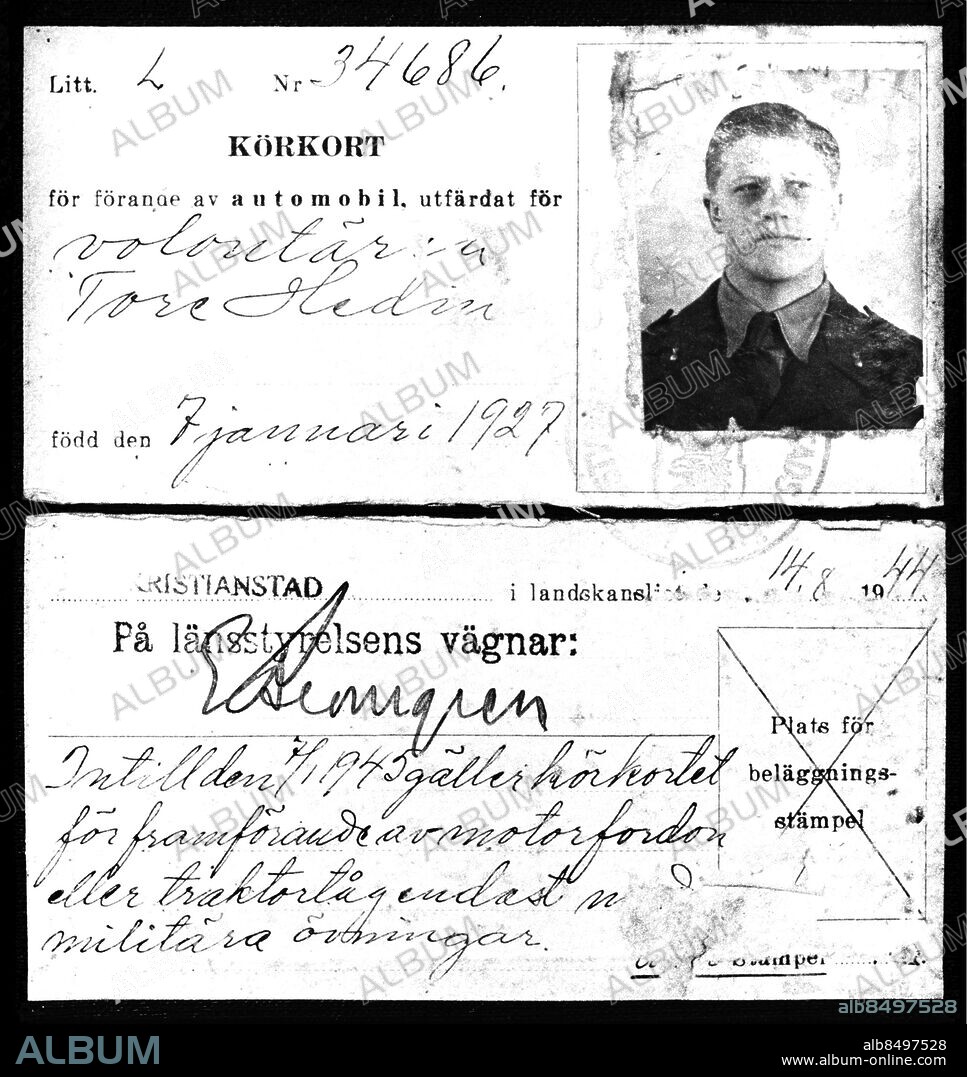 Litt. L Nr 34686.
KÖRKORT
för förande av automobil, utfärdat för
volontären
Tore Hedin
född den 7 januari 1927
KRISTIANSTAD i landskansliet den 14.8 1944
På länsstyrelsens vägnar:
Intill den 7/1 1945 gäller körkortet
för framförande av motorfordon
eller traktortåg endast
militära övningar.
Plats för
beläggnings-
stämpel
Stämpel
ALBUM
alb8497528
ALBUM
alb8497528
www.album-online.com